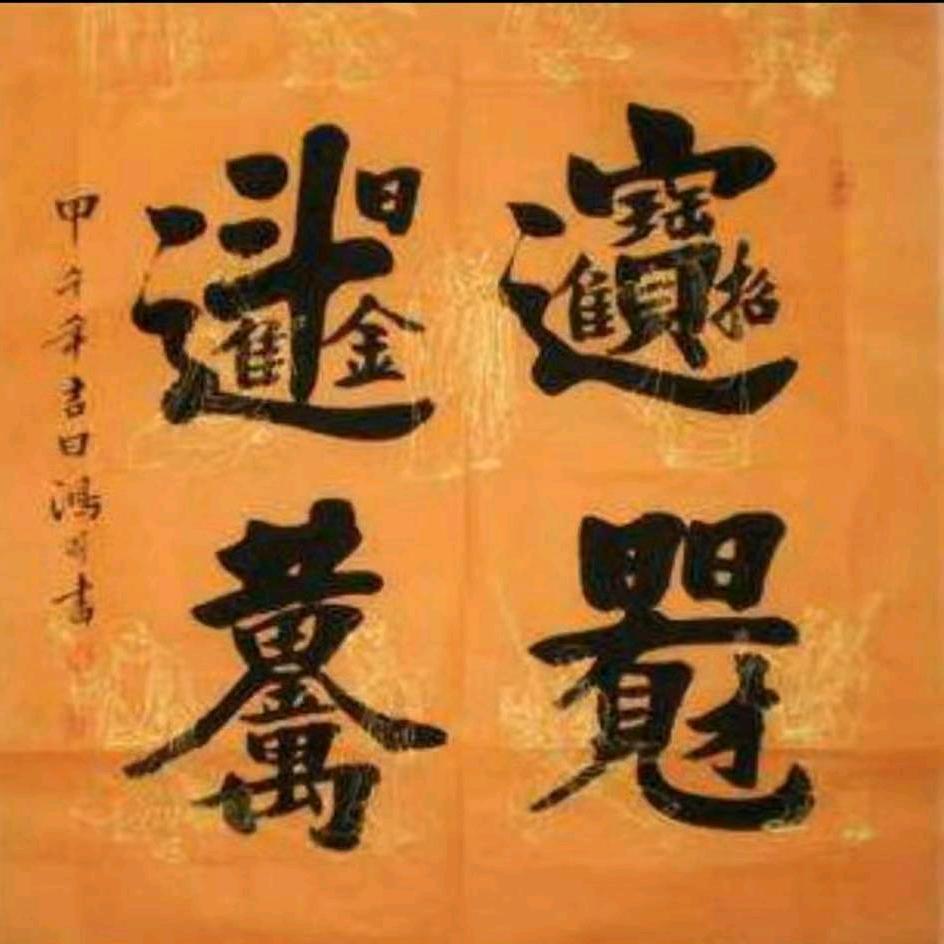 招財進寶
日日有見財
日進斗金
黃金萬兩
甲午年吉日鴻書